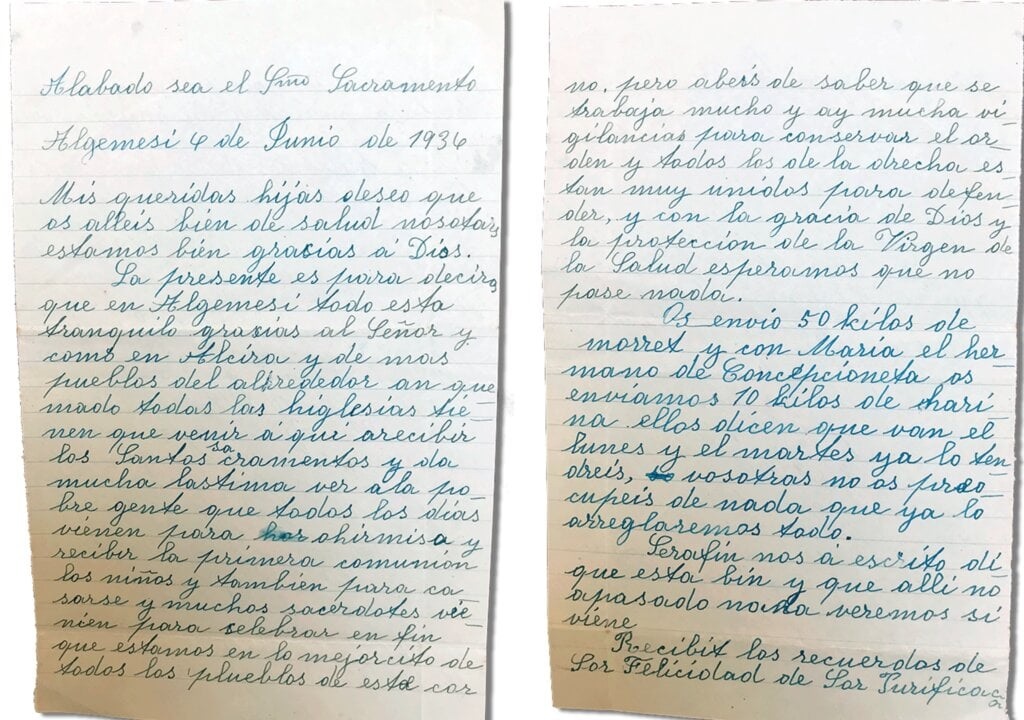 Alabado sea el Smo Sacramento
Algemesí 4 de Junio de 1936
Mis queridas hijas deseo que
os alleis bién de salud nosotars
estamos bién grasias á Dios.
La presente es para deciros
que en Algemesí todo esta
tranquilo grasias al Señor y
como en Alcira y de mas
pueblos del alkrededor an que
mado todas las higlesias tié-
nen que venir á qui arecibir
los Santos sacramentos y da
mucha lastima ver ala po-
bre gente que todos los días
viénen para ohirmisa y
recibir la primera comunión
los niños y también para ca
sarse y muchos sacerdotes vié-
nen para selebrar en fin
que estamos en lo mejorcito de
todos los plueblos de esta cor
no. pero abeís de saber que se
trabaja mucho y ay mucha vi-
gilancias para conservar el or-
den y todos los de la drecha es-
tan muy unidos para defen-
der, y con la gracia de Dios y
la protección de la Virgen de
la Salud esperamos que no
pase nada.
Os envio 50 kilos de
morret y con María el her-
mano de Concepcioneta os
enviamos 10 kilos de hari-
na ellos dicen que van el
lunes y el martes ya lo ten-
dreis, vosotras no os preo-
cupeis de nada que ya lo
arreglaremos todo.
Serafín nos á escrito di
que esta bin y que alli no
apasado nada veremos si
viéne
Recibit los recuerdos de
Sor Feliciodad de Sor Purificacón